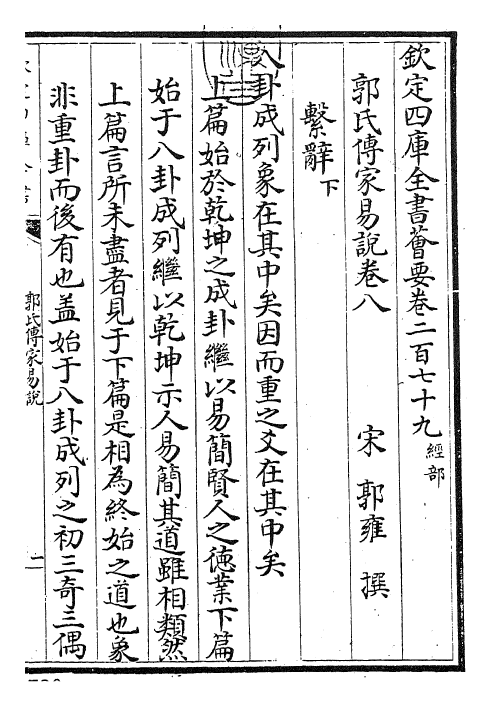 欽定四庫全書薈要卷二百七十九經部
郭氏傳家易說卷八
宋郭雍撰
繫辭下
八卦成列象在其中矣因而重之爻在其中矣
上篇始於乾坤之成卦繼以易簡賢人之德業下篇
始于八卦成列繼以乾坤示人易簡其道雖相類然
上篇言所未盡者見于下篇是相為終始之道也象
非重卦而後有也蓋始于八卦成列之初三奇三偶
郭氏傳家易說
一